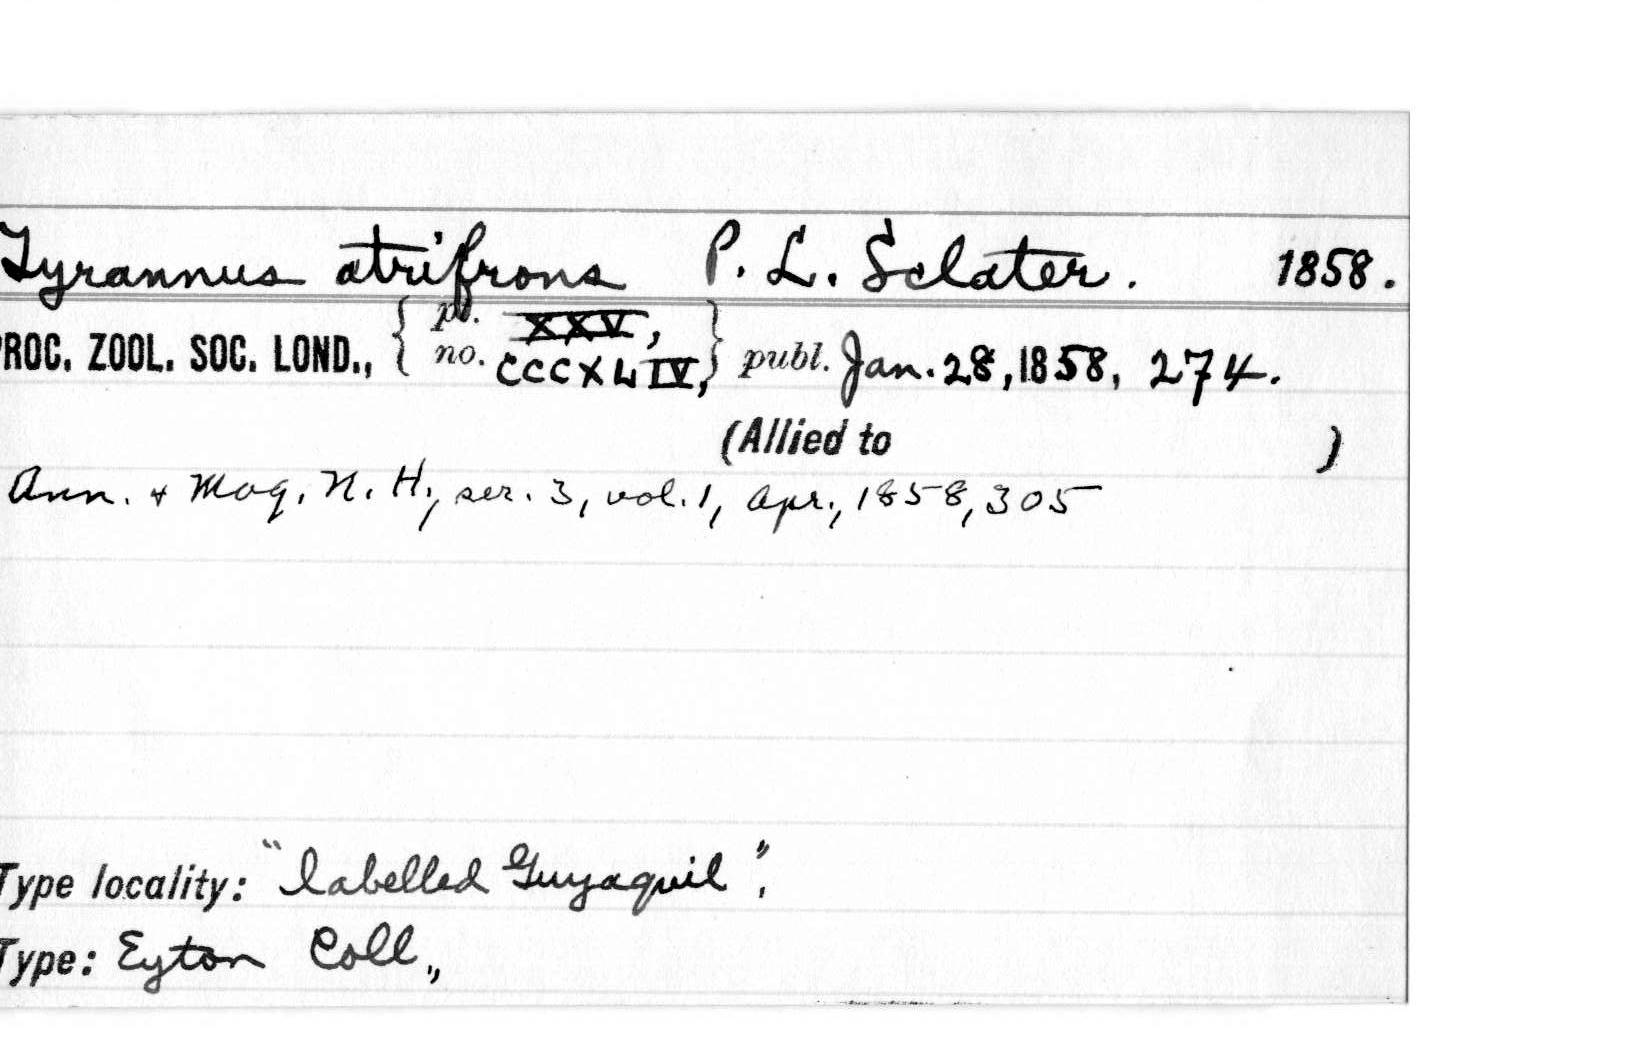 Tyrannus atrifrons P. L. Sclater. 1858.
PROC. ZOOL. SOC. LOND., { pt. XXV, no. CCCXLIV, } publ. Jan. 28, 1858, 274.
(Allied to )
Ann. & Mag. N. H., ser. 3, vol. 1, Apr., 1858, 305
Type locality: "labelled Guyaquil".
Type: Eyton Coll.,